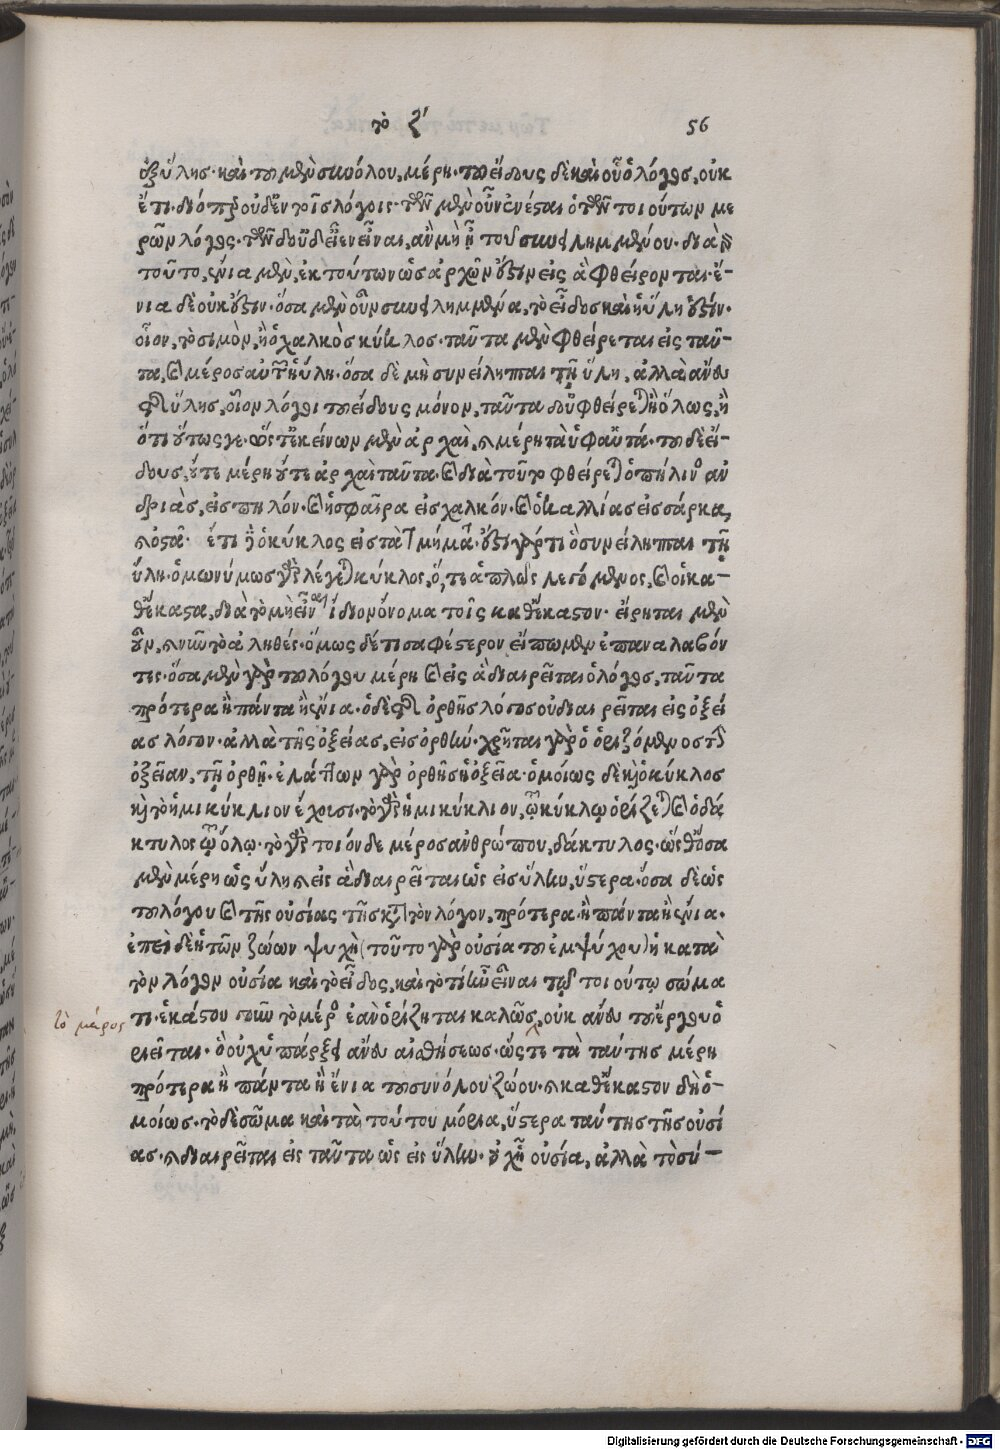 τὸ ζʹ 56
ἐξ ὕλης· καὶ τοῦ μὲν συνόλου, μέρη· τοῦ εἴδους δὲ καὶ οὗ ὁ λόγος, οὐκ
ἔτι· διόπερ οὐδ' ἐν τοῖς λόγοις· τῶν μὲν οὖν ἐνέσται ὁ τῶν τοιούτων με
ρῶν λόγος· τῶν δ' οὐ δεῖ ἐνεῖναι, ἂν μὴ ᾖ τοῦ συνειλημμένου· διὰ γὰρ
τοῦτο, ἔνια μὲν, ἐκ τούτων ὡς ἀρχῶν ἐστὶν εἰς ἃ φθείρονται· ἔ-
νια δὲ οὐκ ἔστιν· ὅσα μὲν οὖν συνειλημμένα, τὸ εἶδος καὶ ἡ ὕλη ἐστίν·
οἷον, τὸ σιμὸν, ἢ ὁ χαλκὸς κύκλος· ταῦτα μὲν φθείρεται εἰς ταῦ-
τα, καὶ μέρος αὐτῶν ἡ ὕλη· ὅσα δὲ μὴ συνείληπται τῇ ὕλῃ, ἀλλὰ ἄνευ
τῆς ὕλης, οἷον λόγοι τοῦ εἴδους μόνον, ταῦτα δ' οὐ φθείρεται ἢ ὅλως, ἢ
ὅτι οὕτως γε· ὥστ' ἐκείνων μὲν ἀρχαὶ, καὶ μέρη τὰ ὑφ' αὑτά· τοῦ δὲ εἴ-
δους, οὔτε μέρη οὔτε ἀρχαὶ ταῦτα· καὶ διὰ τοῦτο φθείρεται ὁ πήλινος ἀν
δριὰς, εἰς πηλόν· καὶ ἡ σφαῖρα εἰς χαλκόν· καὶ ὁ καλλίας εἰς σάρκα,
καὶ ὀστᾶ· ἔτι δὲ ὁ κύκλος εἰς τὰ τμήματα· ἔστι γάρ τι ὃ συνείληπται τῇ
ὕλῃ· ὁμωνύμως γὰρ λέγεται κύκλος, ὅ, τε ἁπλῶς λεγόμενος, καὶ οἱ κα-
θ' ἕκαστα, διὰ τὸ μὴ εἶναι ἴδιον ὄνομα τοῖς καθ' ἕκαστον· εἴρηται μὲν
οὖν, καὶ νῦν τὸ ἀληθές· ὅμως δ' ἔτι σαφέστερον εἴπωμεν ἐπαναλαβόν
τες· ὅσα μὲν γὰρ τοῦ λόγου μέρη καὶ εἰς ἃ διαιρεῖται ὁ λόγος, ταῦτα
πρότερα ἢ πάντα ἢ ἔνια· ὁ δὲ τῆς ὀρθῆς λόγος οὐ διαιρεῖται εἰς ὀξεί
ας λόγον· ἀλλὰ τῆς ὀξείας, εἰς ὀρθήν· χρῆται γὰρ ὁ ὁριζόμενος τὴν
ὀξεῖαν, τῇ ὀρθῇ· ἐλάττων γὰρ ὀρθῆς ἡ ὀξεῖα· ὁμοίως δὲ καὶ ὁ κύκλος
καὶ τὸ ἡμικύκλιον ἔχουσι· τὸ γὰρ ἡμικύκλιον, τῷ κύκλῳ ὁρίζεται καὶ ὁ δά
κτυλος τῷ ὅλῳ· τὸ γὰρ τοιόνδε μέρος ἀνθρώπου, δάκτυλος· ὥσθ' ὅσα
μὲν μέρη ὡς ὕλη καὶ εἰς ἃ διαιρεῖται ὡς εἰς ὕλην, ὕστερα· ὅσα δὲ ὡς
τοῦ λόγου καὶ τῆς οὐσίας τῆς κατὰ τὸν λόγον, πρότερα ἢ πάντα ἢ ἔνια·
ἐπεὶ δὲ ἡ τῶν ζώων ψυχὴ (τοῦτο γὰρ οὐσία τοῦ ἐμψύχου) ἡ κατὰ
τὸν λόγον οὐσία καὶ τὸ εἶδος, καὶ τὸ τί ἦν εἶναι τῷ τοιούτῳ σώμα
τι· ἑκάστου γοῦν τὸ μέρος ἐὰν ὁρίζηται καλῶς, οὐκ ἄνευ τοῦ ἔργου ὁ
τὸ μέρος
ριεῖται· ὃ οὐχ ὑπάρξει ἄνευ αἰσθήσεως· ὥστε τὰ ταύτης μέρη
πρότερα ἢ πάντα ἢ ἔνια τοῦ συνόλου ζώου· καὶ καθ' ἕκαστον δὴ ὁ-
μοίως· τὸ δὲ σῶμα καὶ τὰ τούτου μόρια, ὕστερα ταύτης τῆς οὐσί
ας· καὶ διαιρεῖται εἰς ταῦτα ὡς εἰς ὕλην· οὐχ ἡ οὐσία, ἀλλὰ τὸ σύ-
Digitalisierung gefördert durch die Deutsche Forschungsgemeinschaft - DFG